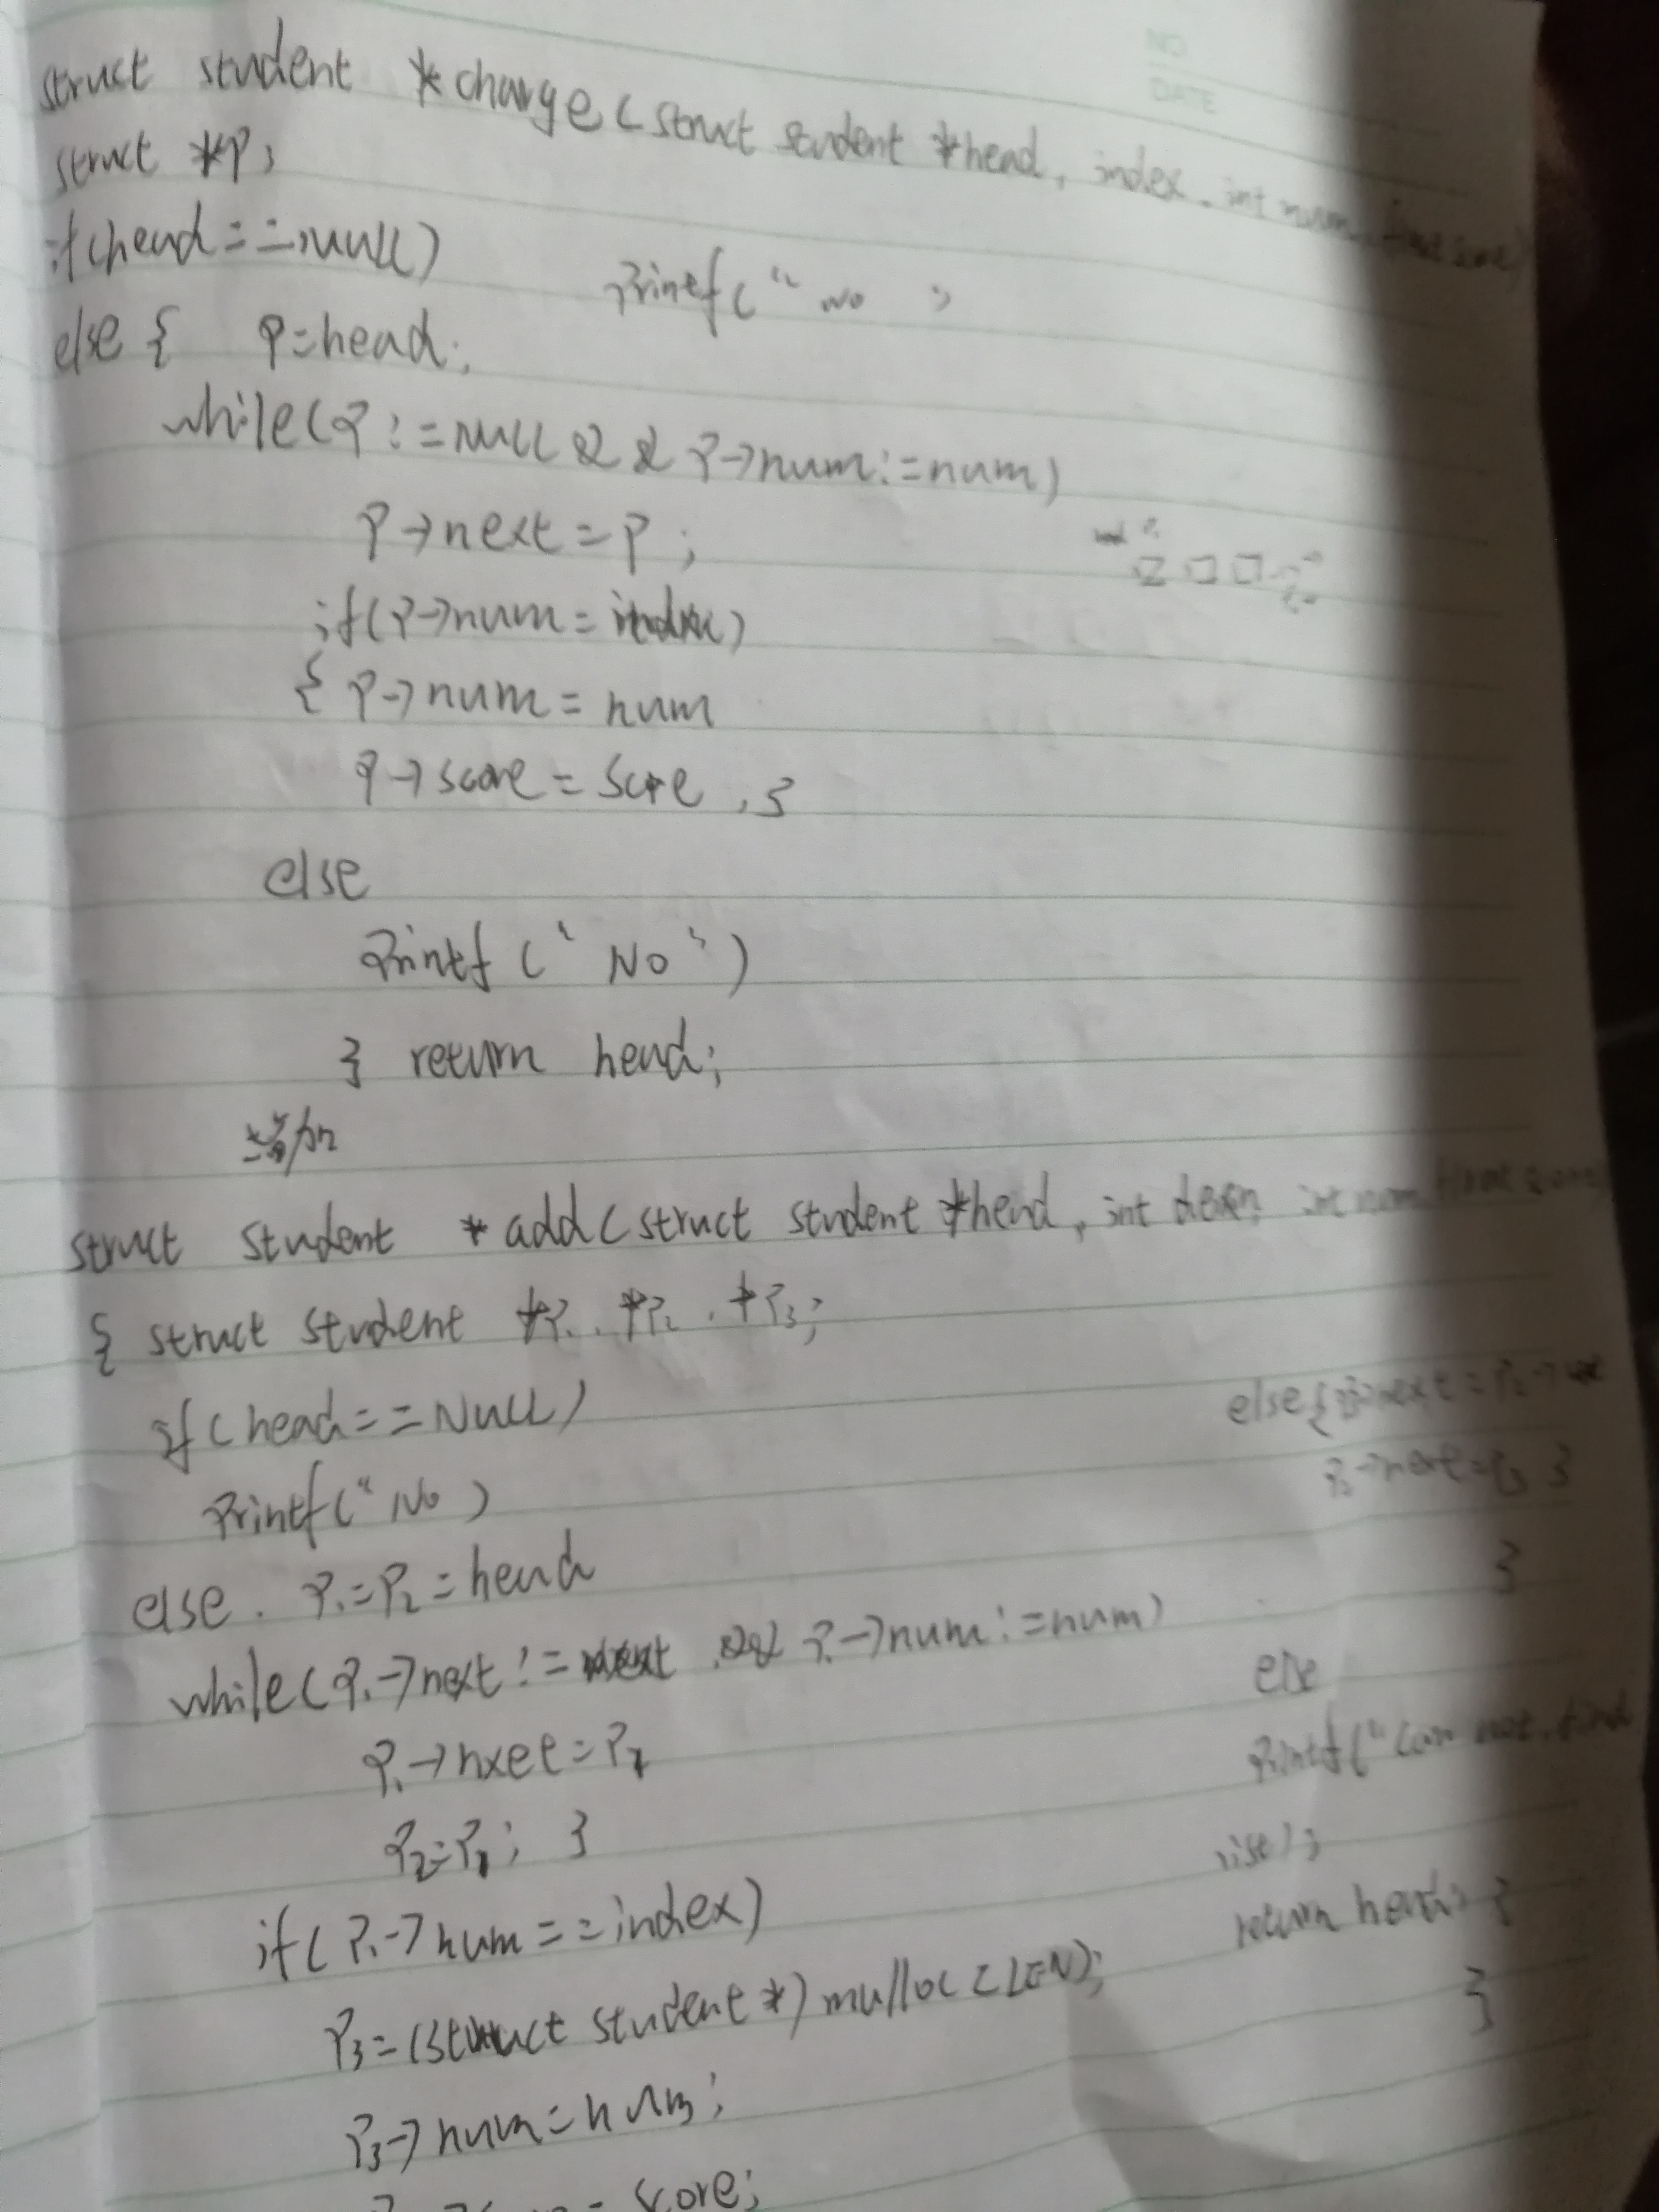 NO
DATE
struct student *change(struct student *head, index, int num, float score)
struct *p;
if(head==NULL)
printf("No ")
else { p=head;
while(p!=NULL && p->num!=num)
p->next=p;
if(p->num=index)
{ p->num=num
p->score=score,}
else
printf("No")
} return head;
增加
struct student *add(struct student *head, int num, float score)
{ struct student *p1,*p2,*p3;
if(head==NULL)
printf("No)
else. p1=p2=head
while(p1->next!= && p1->num!=num)
p1->nxet=p1
p2=p1; }
if(p1->num==index)
p3=(struct student*)malloc(LEN);
p3->num=num;
score;
else{p3->next=p2->
p2->next=p3 }
}
else
printf("can not find
list);
return head; }
}